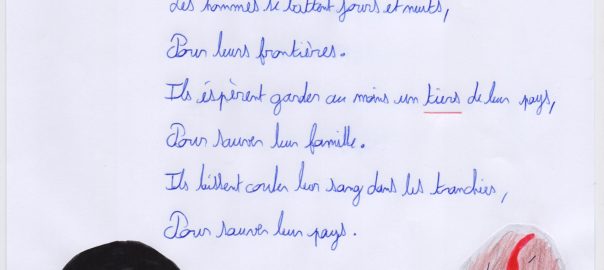 Les hommes se battent jours et nuits,
Pour leurs frontières.
Ils éspèrent garder au moins un tiers de leur pays,
Pour sauver leur famille.
Ils laissent couler leur sang dans les tranchées,
Pour sauver leur pays.